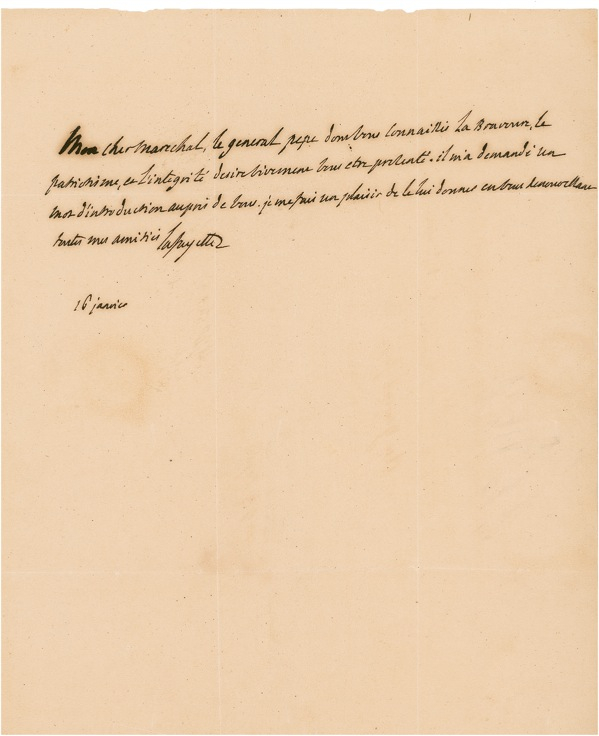 Mon cher marechal, le general pepe dont vous connaissés la Bravoure, le
patriotisme, et l'integrité desire vivement vous etre presenté. il m'a demandé un
mot d'introduction aupres de vous. je me fais un plaisir de le lui donner en vous renouvellant
toutes mes amitiés Lafayette
16 janvier